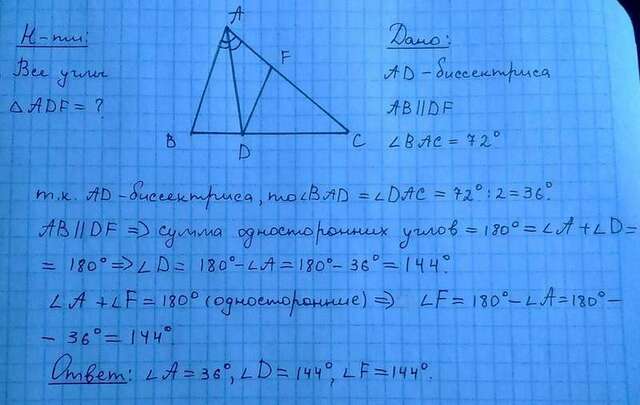 Н-ти:
Все углы
△ADF = ?
A
F
B
D
C
Дано:
AD - биссектриса
AB || DF
∠BAC = 72°
т.к. AD - биссектриса, то ∠BAD = ∠DAC = 72° : 2 = 36°.
AB || DF => сумма односторонних углов = 180° = ∠A + ∠D =
= 180° => ∠D = 180° - ∠A = 180° - 36° = 144°.
∠A + ∠F = 180° (односторонние) => ∠F = 180° - ∠A = 180° -
- 36° = 144°.
Ответ: ∠A = 36°, ∠D = 144°, ∠F = 144°.